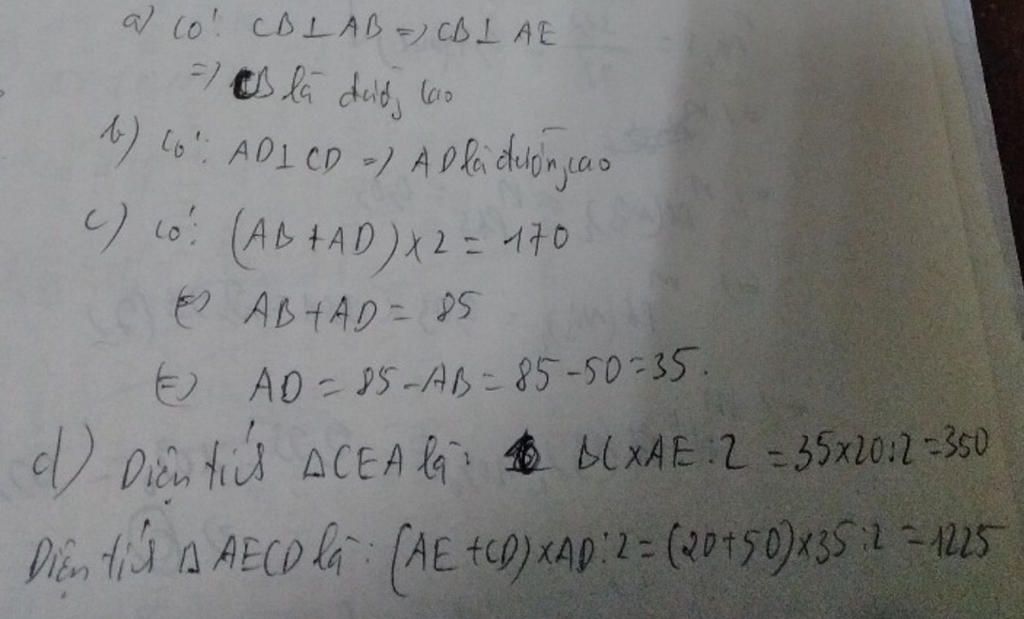 a) Có: CB⊥AB => CB⊥AE
=> CB là đường cao
b) Có: AD⊥CD => AD là đường cao
c) Có: (AB+AD)×2=170
<=> AB+AD=85
<=> AD=85-AB=85-50=35.
d) Diện tích ΔCEA là: BC×AE:2=35×20:2=350
Diện tích Δ AECD là: (AE+CD)×AD:2=(20+50)×35:2=1225